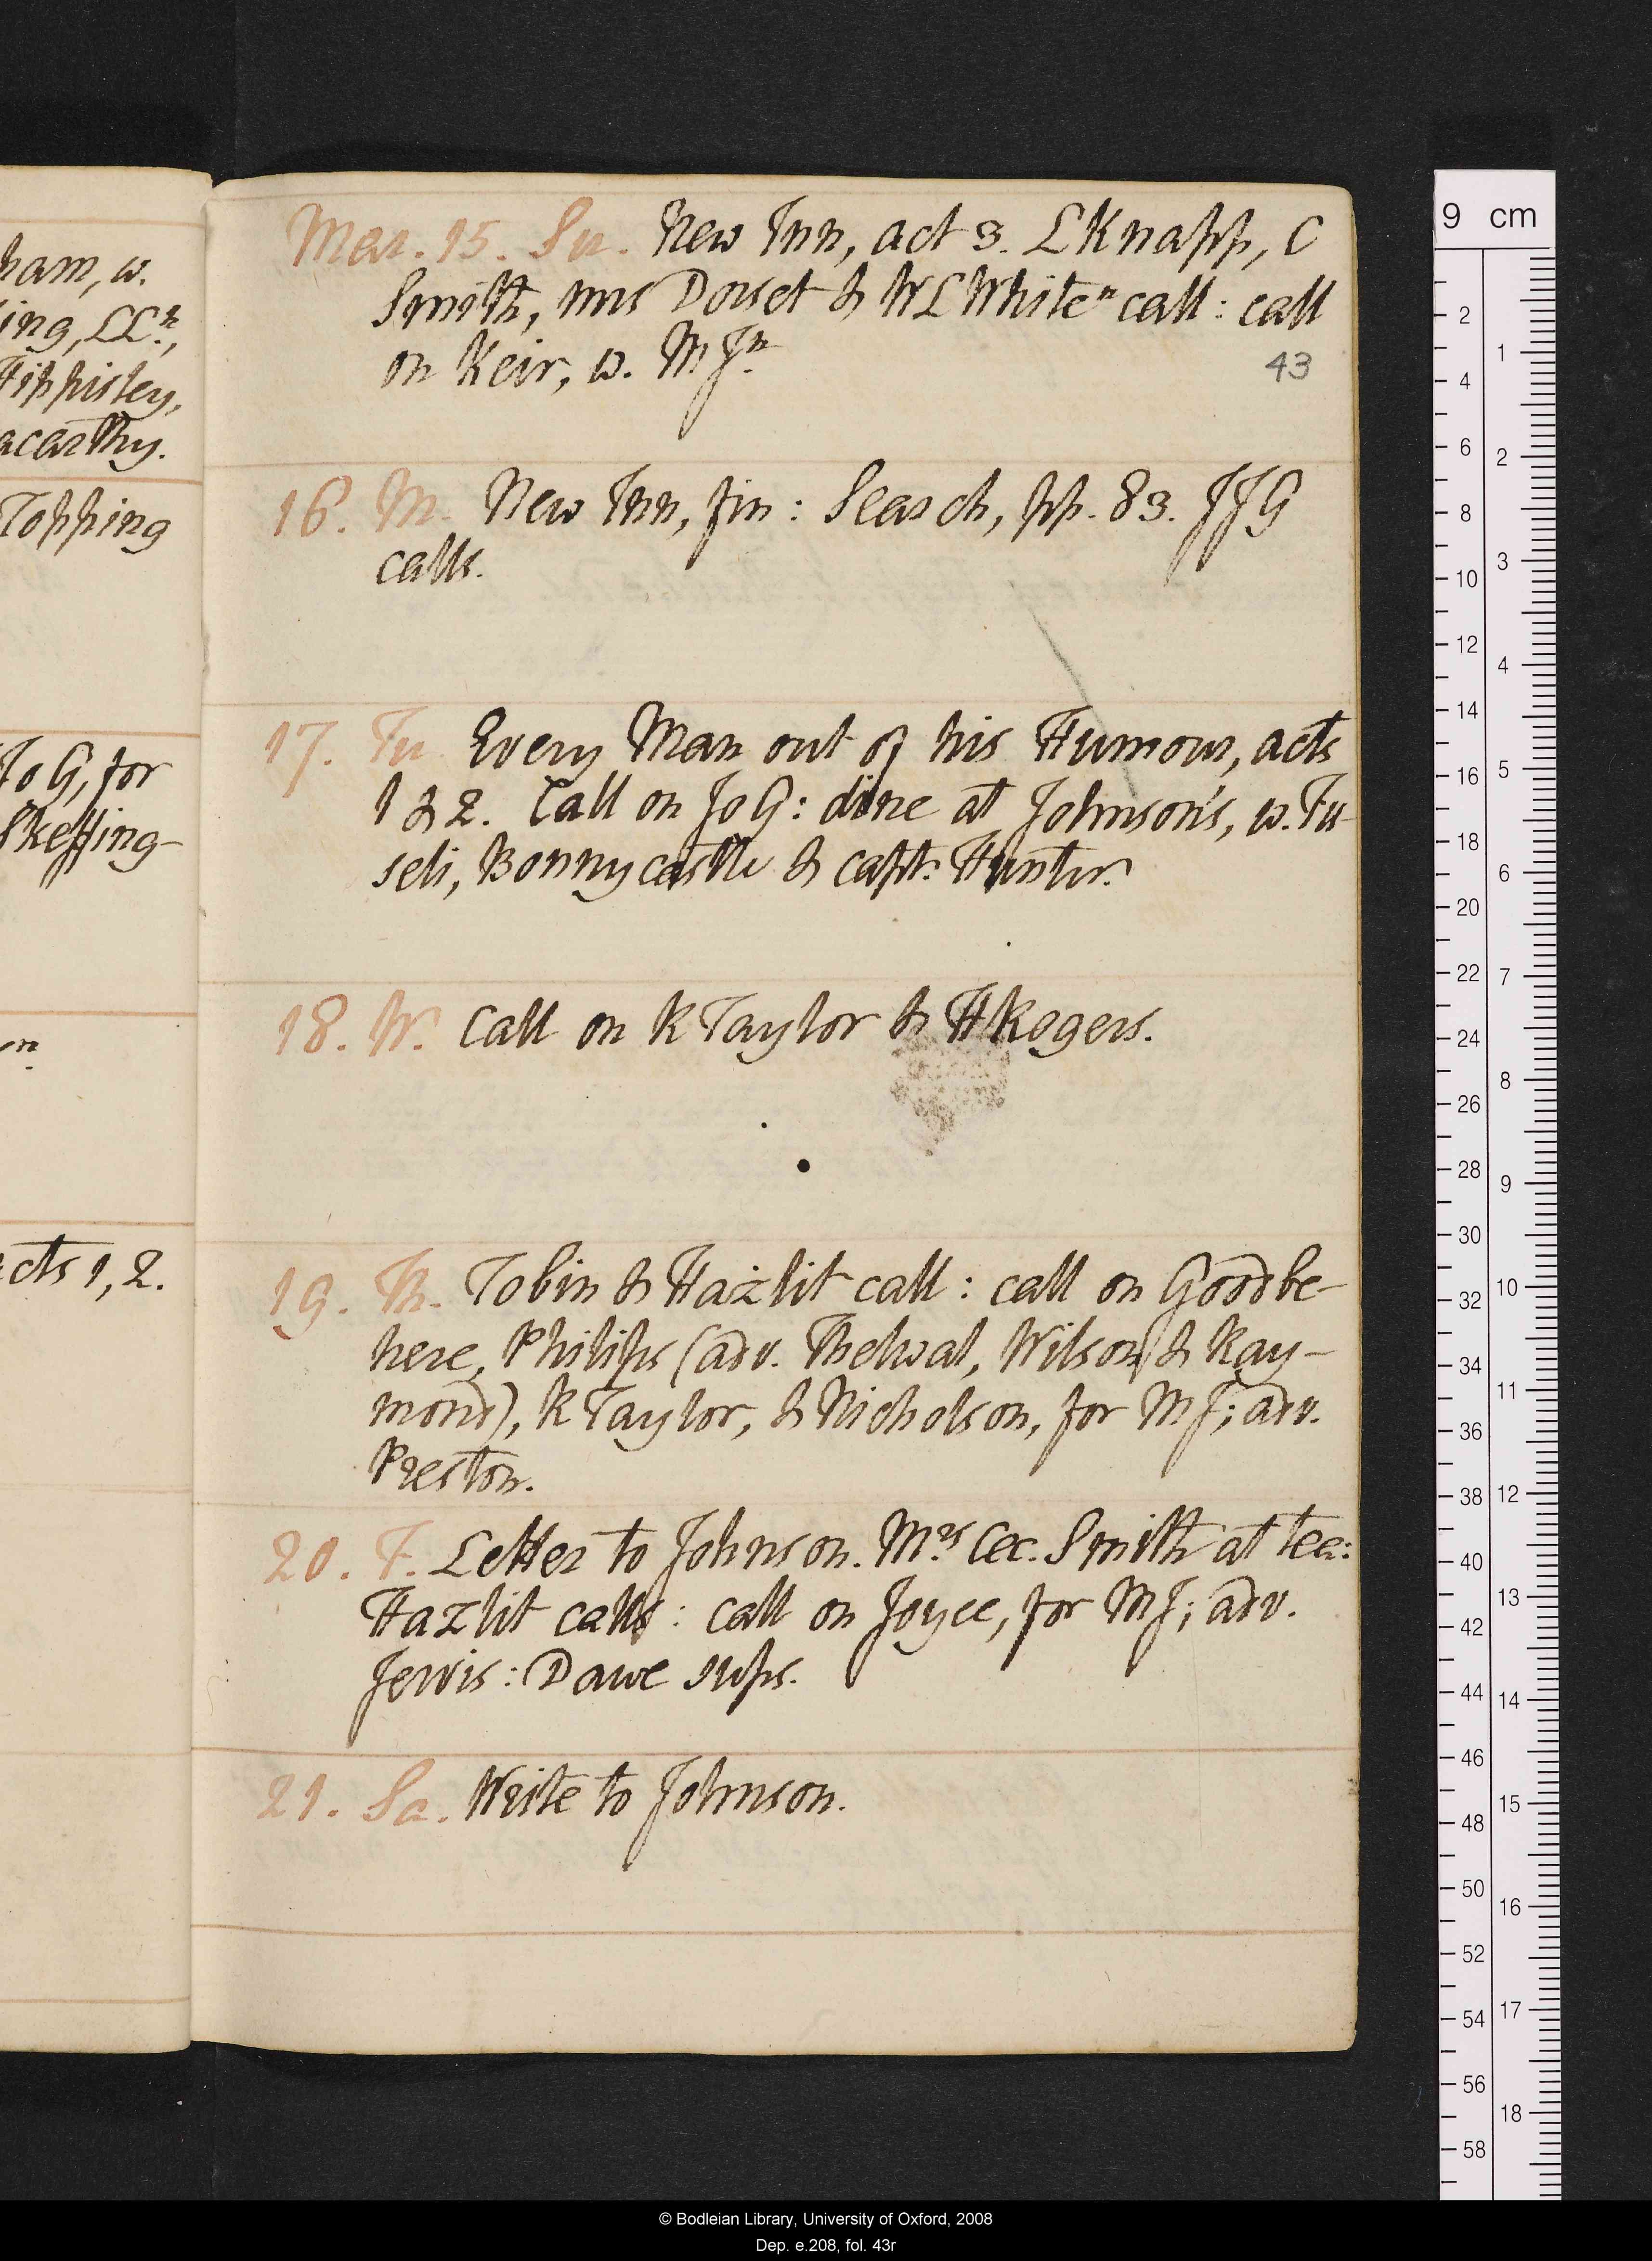 ham, w.
ing, LLn,
Hippisley,
acarthy.
Topping
Jo G, for
Skeffing-
cts 1, 2.
Mar. 15. Su. New Inn, act 3. L Knapp, C
Smith, mrs Dorset & W L White call: call
on Keir, w. M Jn.
43
16. M. New Inn, fin: Search, pp. 83. JJG
calls.
17. Tu Every Man out of his Humour, acts
1 & 2. Call on Jo G: dine at Johnson's, w. Fu-
seli, Bonnycastle & capt. Hunter.
18. W. Call on R Taylor & H Rogers.
19. Th. Tobin & Hazlit call: call on Goodbe-
here, Philips (adv. Thelwal, Wilson & Ray-
mond), R Taylor, & Nicholson, for MJ; adv.
Preston.
20. F. Letter to Johnson. Mrs Cec. Smith at tea:
Hazlit calls: call on Joyce, for MJ; adv.
Jervis: Dawe sups.
21. Sa. Write to Johnson.
9 cm
2
4
6
8
10
12
14
16
18
20
22
24
26
28
30
32
34
36
38
40
42
44
46
48
50
52
54
56
58
1
2
3
4
5
6
7
8
9
10
11
12
13
14
15
16
17
18
© Bodleian Library, University of Oxford, 2008
Dep. e.208, fol. 43r